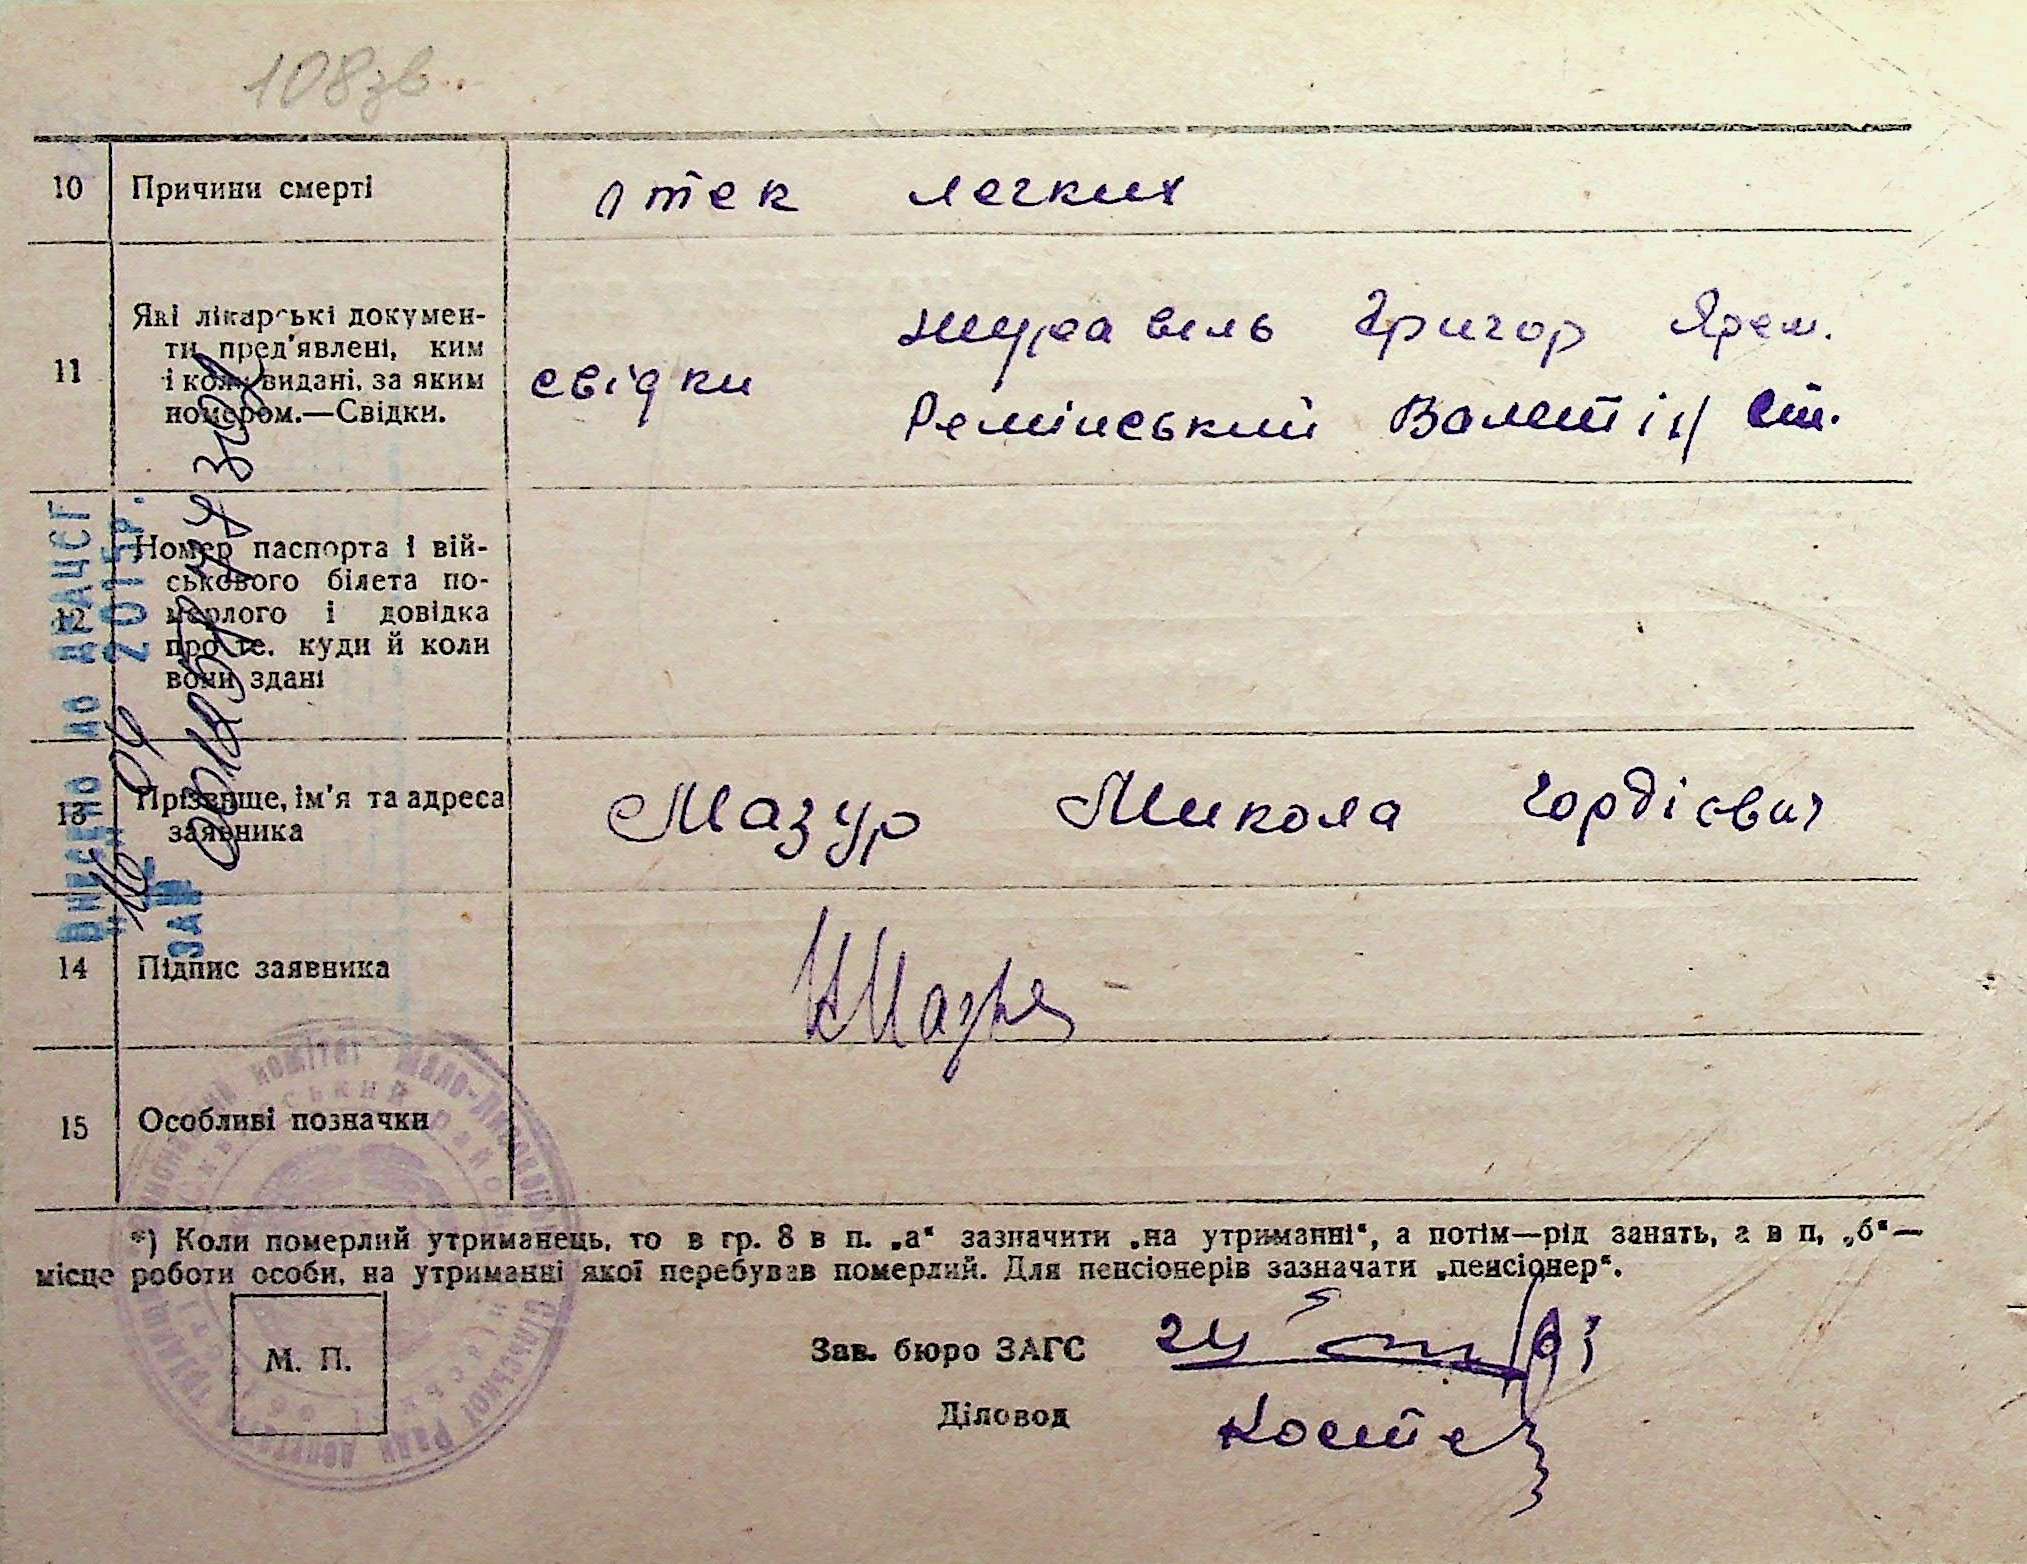 108зв.
10 Причини смерті отек легких
11 Які лікарські докумен-
ти пред'явлені, ким
і коли видані, за яким
номером.—Свідки.
свідки Журавель Григор Ярем.
Ремінський Валентін Ст.
12 Номер паспорта і вій-
ськового білета по-
мерлого і довідка
про те, куди й коли
вони здані
13 Прізвище, ім'я та адреса
заявника
Мазур Микола Гордієвич
14 Підпис заявника
НМазур
15 Особливі позначки
Внесено до ДРАЦСГ
2015р.
*) Коли померлий утриманець, то в гр. 8 в п. „а“ зазначити „на утриманні“, а потім—рід занять, а в п, „б“—
місце роботи особи, на утриманні якої перебував померлий. Для пенсіонерів зазначати „пенсіонер“.
М. П.
Зав. бюро ЗАГС
Діловод